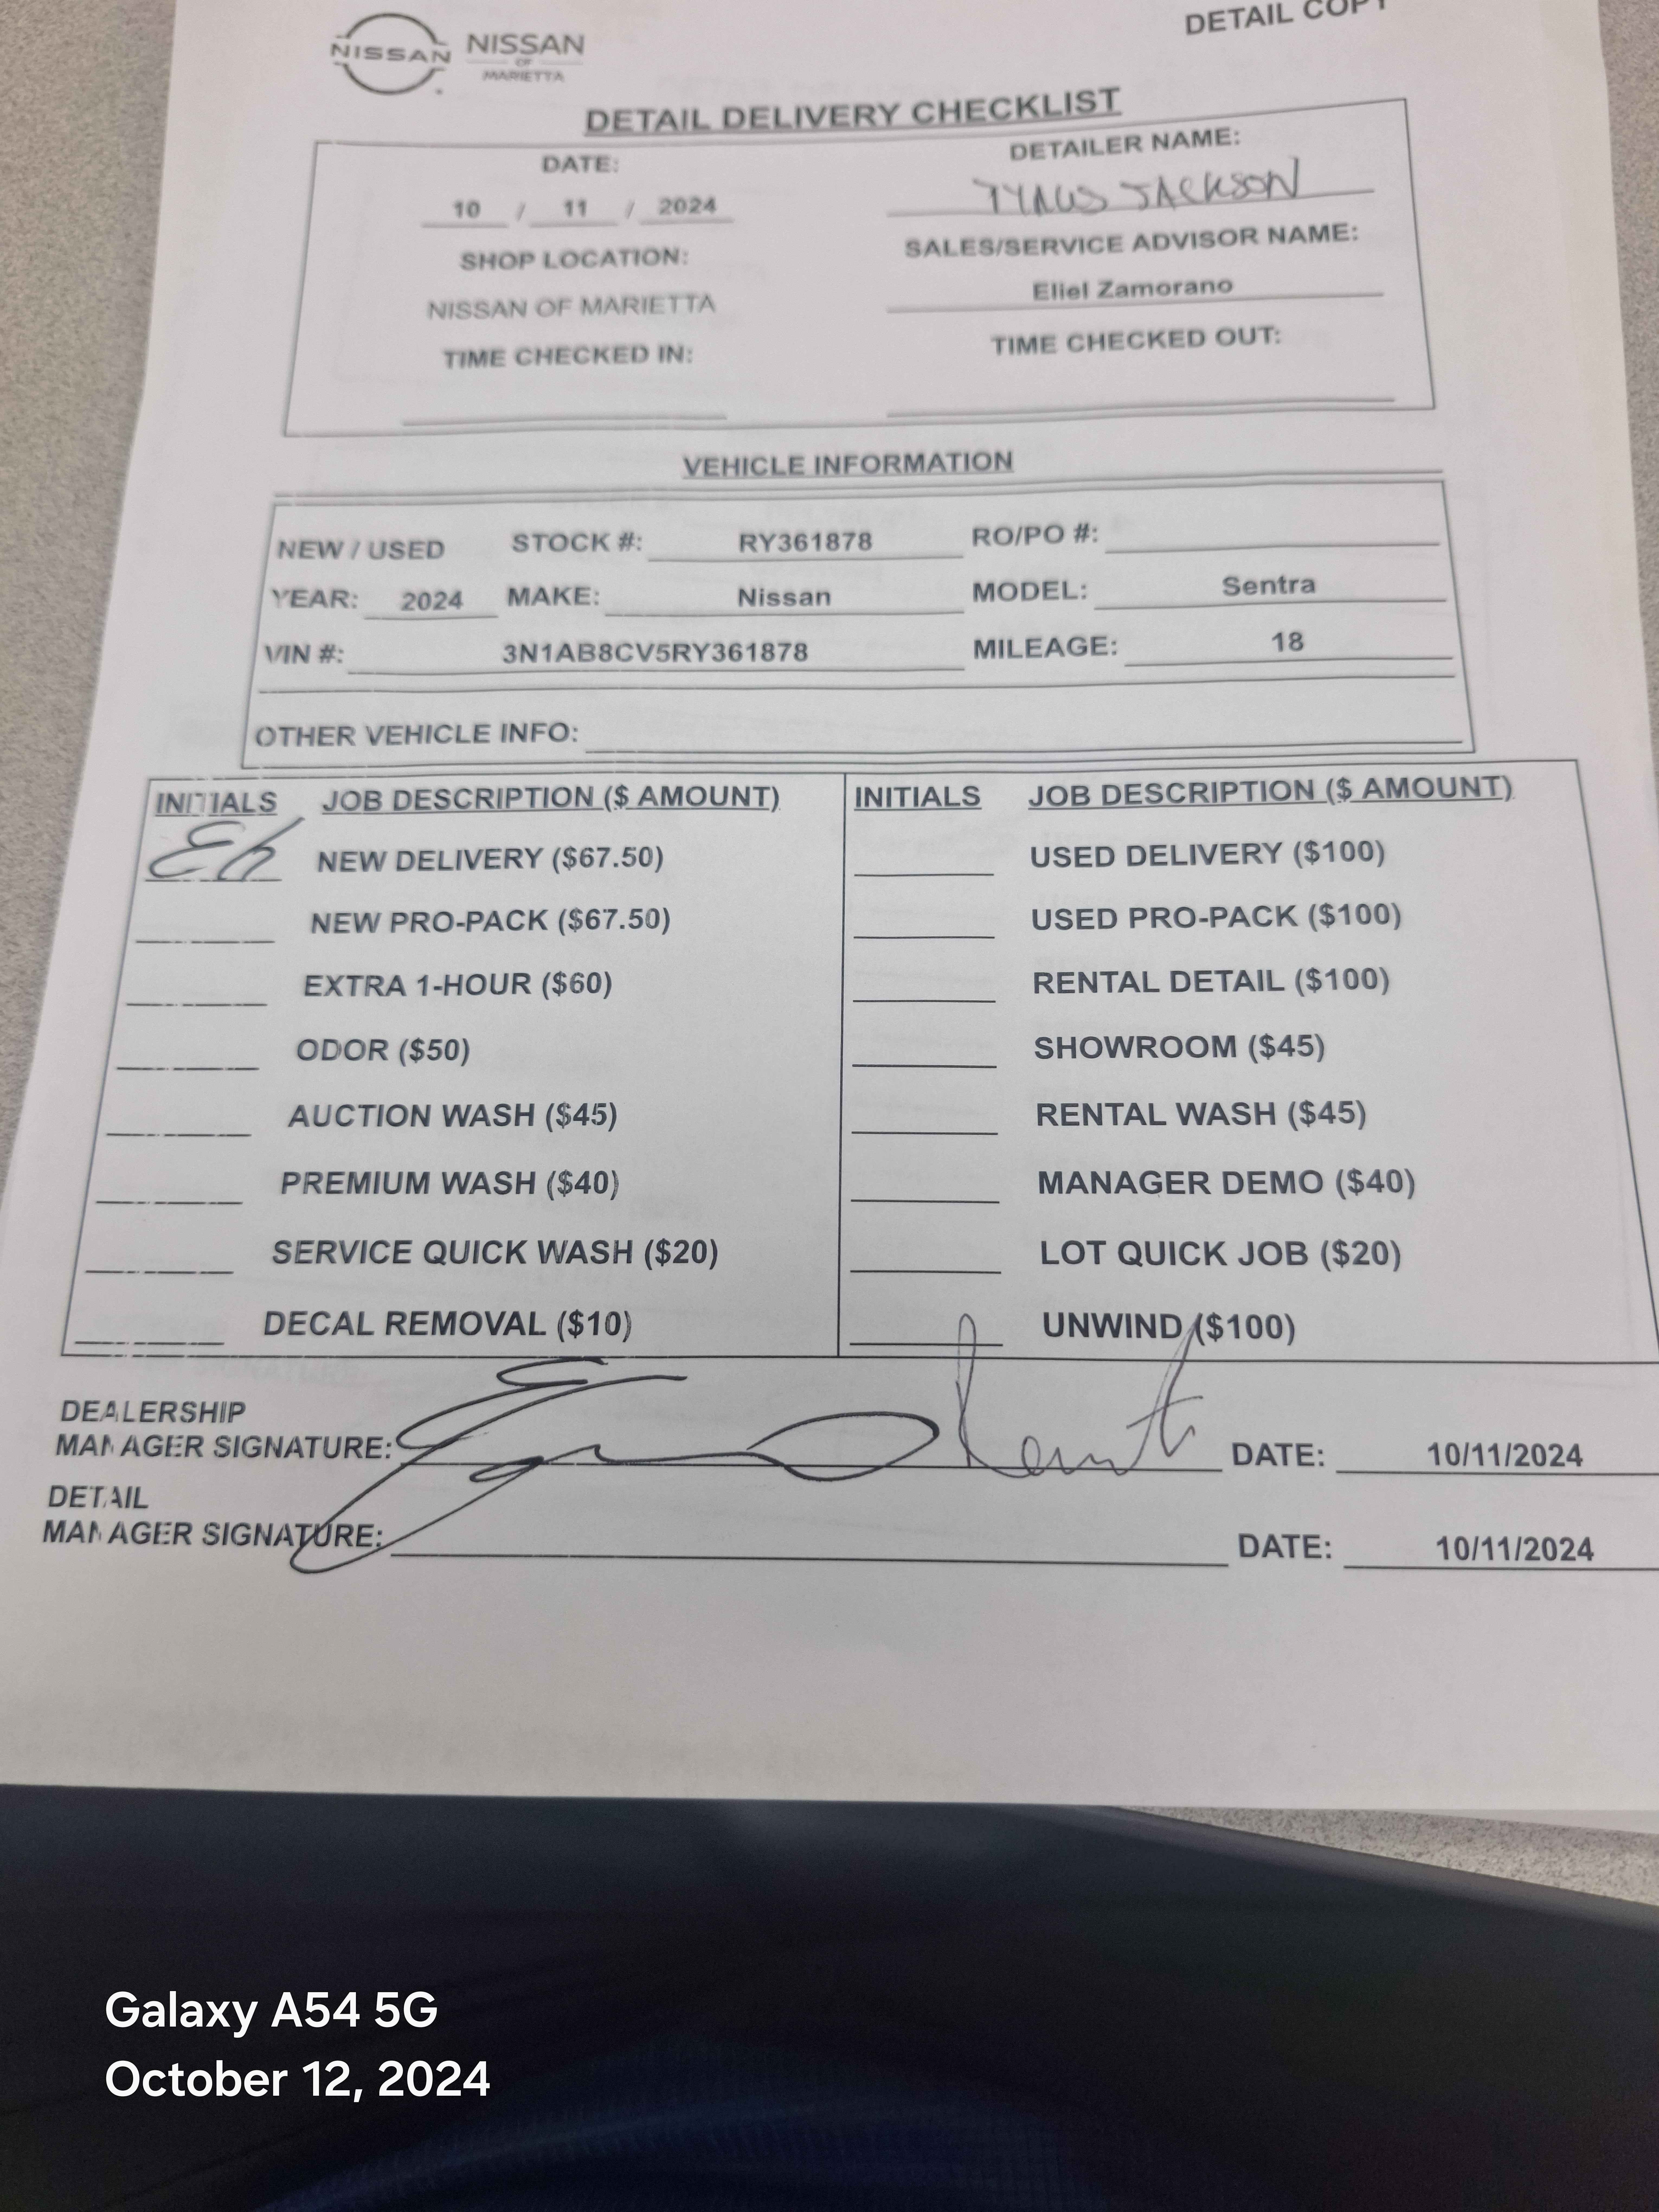 DETAIL COPY
NISSAN NISSAN
OF
MARIETTA
DETAIL DELIVERY CHECKLIST
DATE: DETAILER NAME:
10 / 11 / 2024 JACKSON
SHOP LOCATION: SALES/SERVICE ADVISOR NAME:
NISSAN OF MARIETTA Eliel Zamorano
TIME CHECKED IN: TIME CHECKED OUT:
VEHICLE INFORMATION
NEW / USED STOCK #: RY361878 RO/PO #:
YEAR: 2024 MAKE: Nissan MODEL: Sentra
VIN #: 3N1AB8CV5RY361878 MILEAGE: 18
OTHER VEHICLE INFO:
INITIALS JOB DESCRIPTION ($ AMOUNT) INITIALS JOB DESCRIPTION ($ AMOUNT)
NEW DELIVERY ($67.50) USED DELIVERY ($100)
NEW PRO-PACK ($67.50) USED PRO-PACK ($100)
EXTRA 1-HOUR ($60) RENTAL DETAIL ($100)
ODOR ($50) SHOWROOM ($45)
AUCTION WASH ($45) RENTAL WASH ($45)
PREMIUM WASH ($40) MANAGER DEMO ($40)
SERVICE QUICK WASH ($20) LOT QUICK JOB ($20)
DECAL REMOVAL ($10) UNWIND ($100)
DEALERSHIP
MANAGER SIGNATURE: DATE: 10/11/2024
DETAIL
MANAGER SIGNATURE: DATE: 10/11/2024
Galaxy A54 5G
October 12, 2024